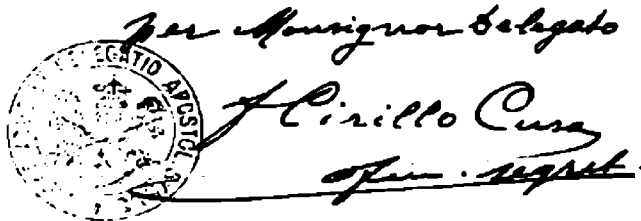 per Monsignor Delegato
DELEGATIO APOSTOL
f Cirillo Cusa
segret.